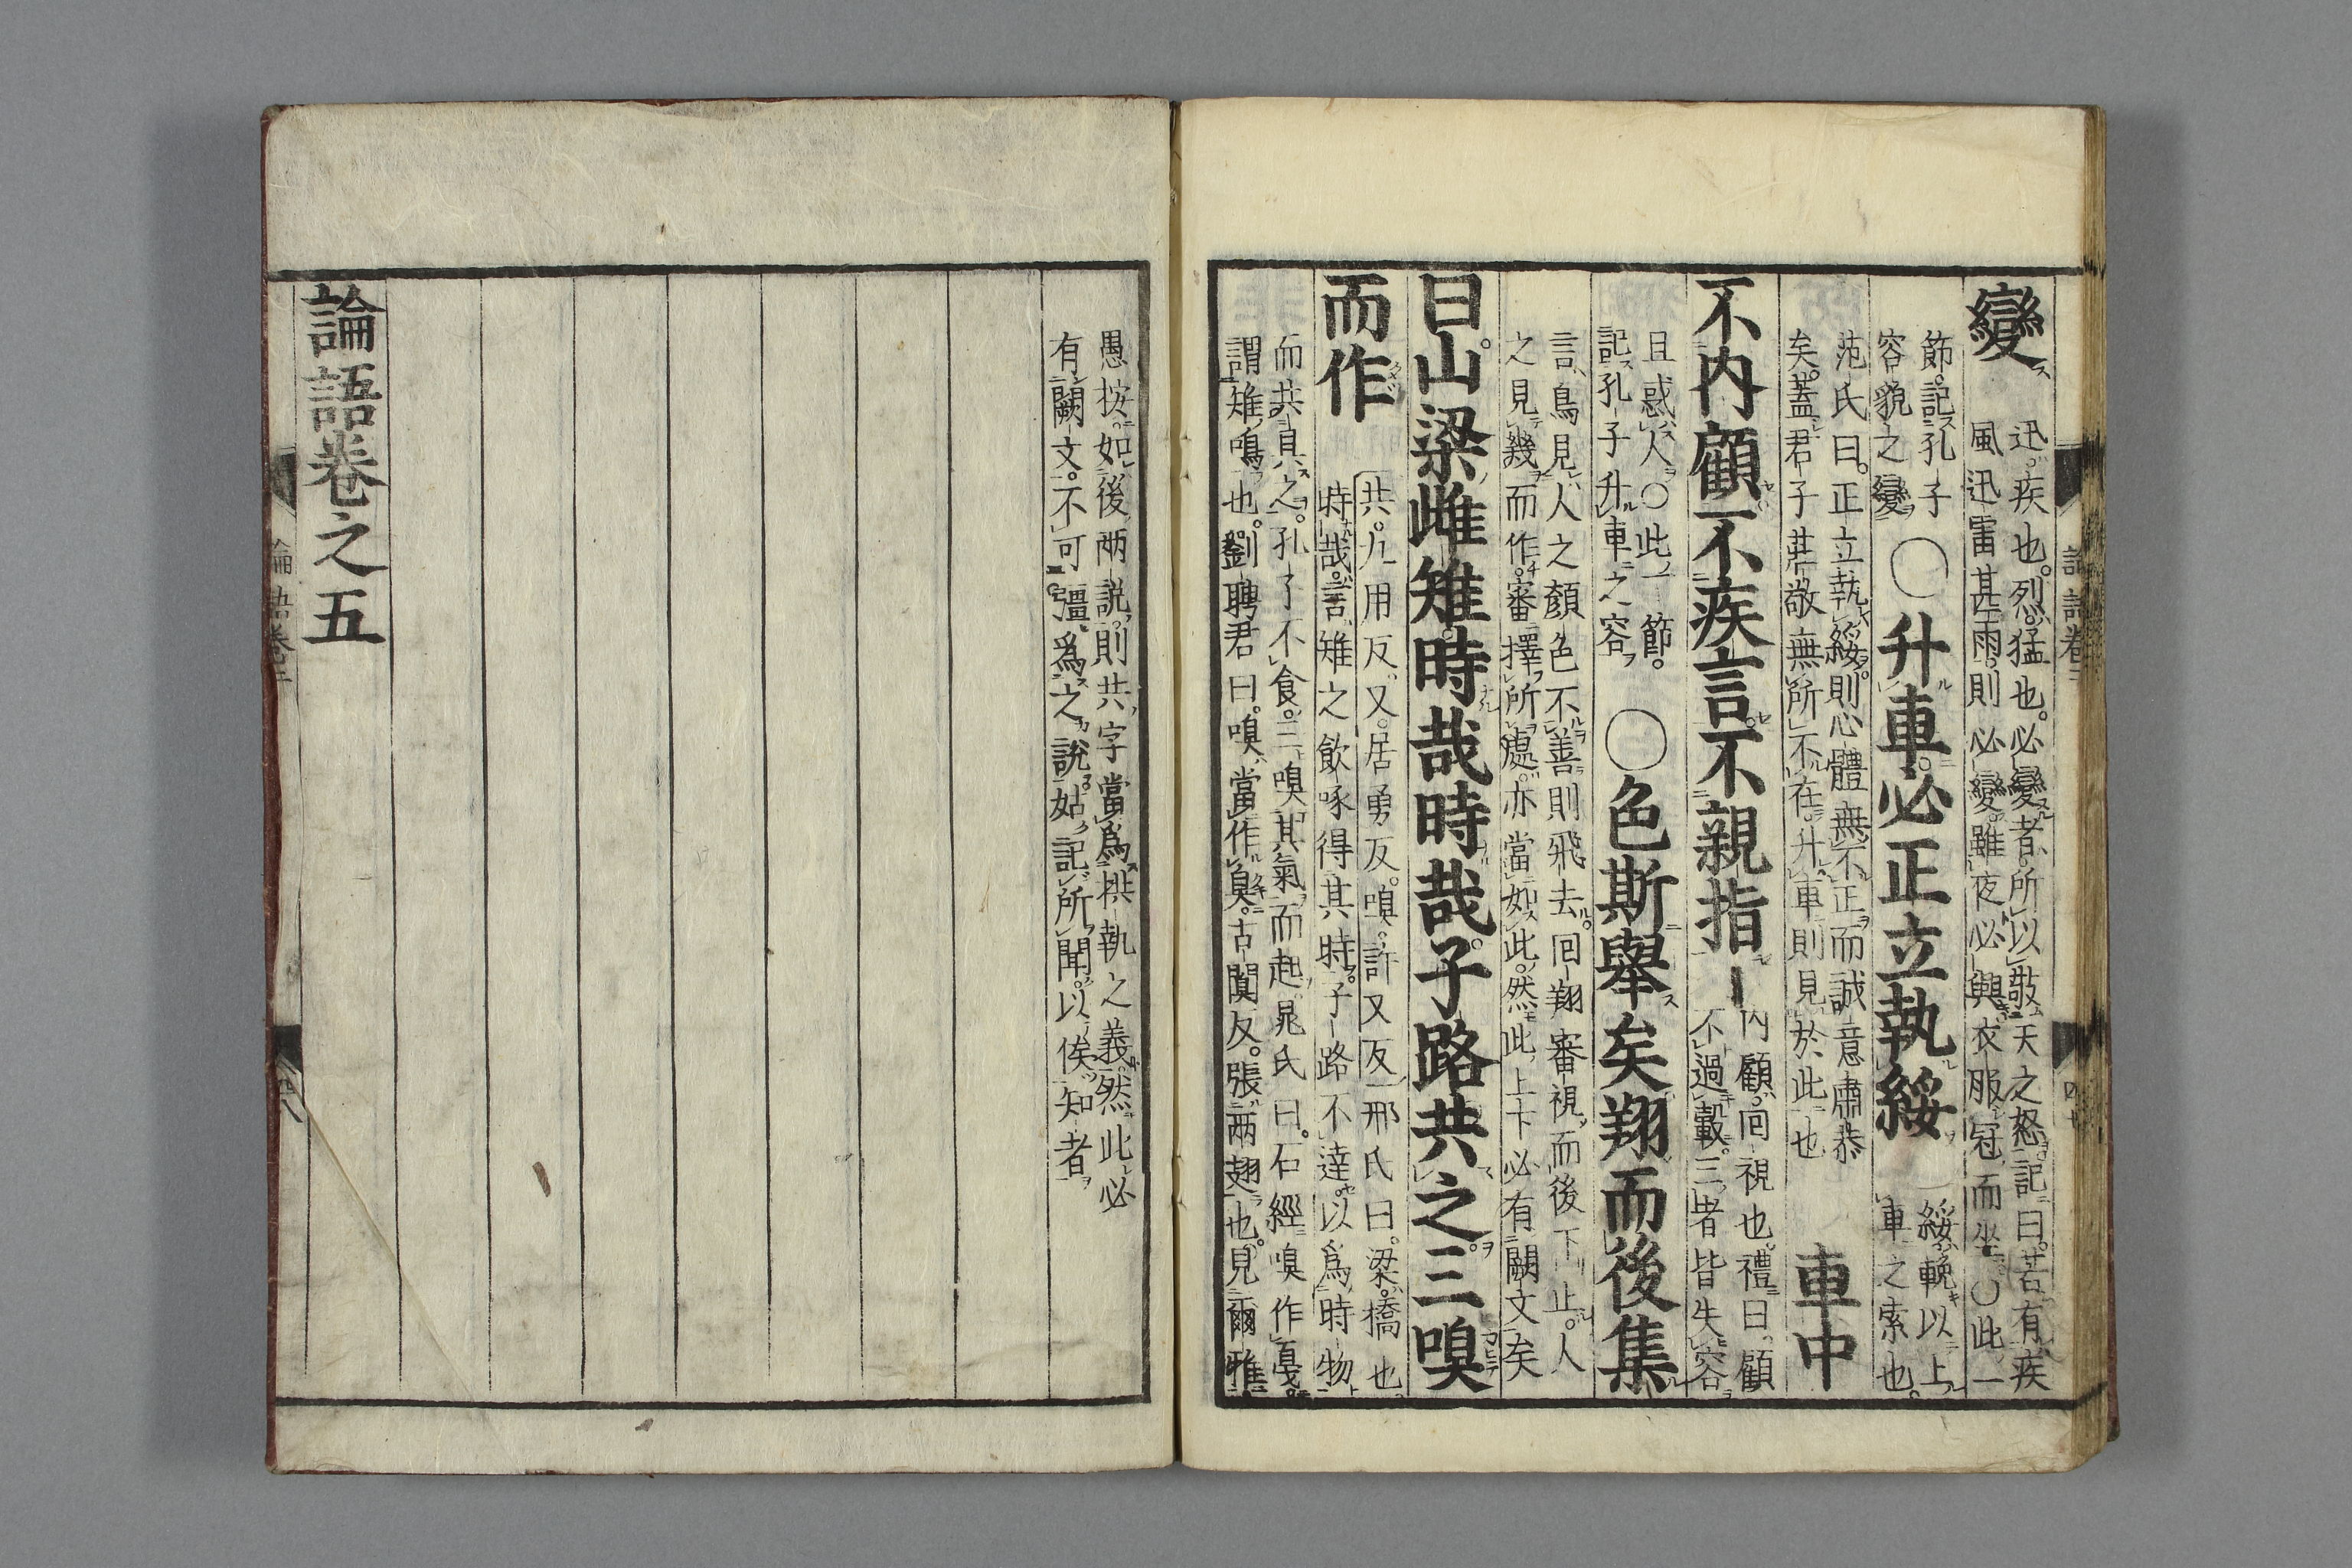 變
迅疾也。烈猛也。必變者所以敬天之怒。記曰。若有疾
風迅雷甚雨。則必變。雖夜必興。衣服冠而坐。○此一
節。記孔子
容貌之變
○升車。必正立執綏
綏。輓以上
車之索也。
范氏曰。正立執綏。則心體無不正。而誠意肅恭
矣。蓋君子莊敬無所不在。升車則見於此也
車中
不內顧。不疾言。不親指
內顧。回視也。禮曰。顧
不過轂。三者皆失容
且惑人。○此一節。
記孔子升車之容
○色斯舉矣翔而後集
言鳥見人之顏色不善則飛去。回翔審視而後下止。人
之見幾而作。審擇所處。亦當如此。然此上下必有闕文矣
曰。山梁雌雉。時哉時哉。子路共之。三嗅
而作
共。九用反。又。居勇反。嗅。許又反。邢氏曰。梁。橋也
時哉。言雉之飲啄得其時。子路不達。以爲時物
而共具之。孔子不食。三嗅其氣而起。晁氏曰。石經嗅作戛。
謂雉鳴也。劉聘君曰。嗅當作狊。古闃反。張兩翅也。見爾雅
愚按。如後兩說。則共字當爲拱執之義。然此必
有闕文。不可彊爲之說。姑記所聞。以俟知者
論語卷之五